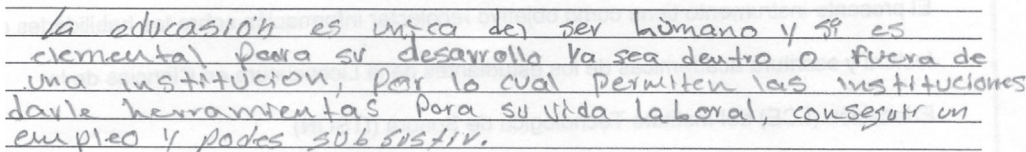 La educasión es unica del ser húmano y si es
elemental para su desarrollo ya sea dentro o fuera de
una institucion, por lo cual permiten las instituciones
darle herramientas para su vida laboral, conseguir un
empleo y podes subsistir.